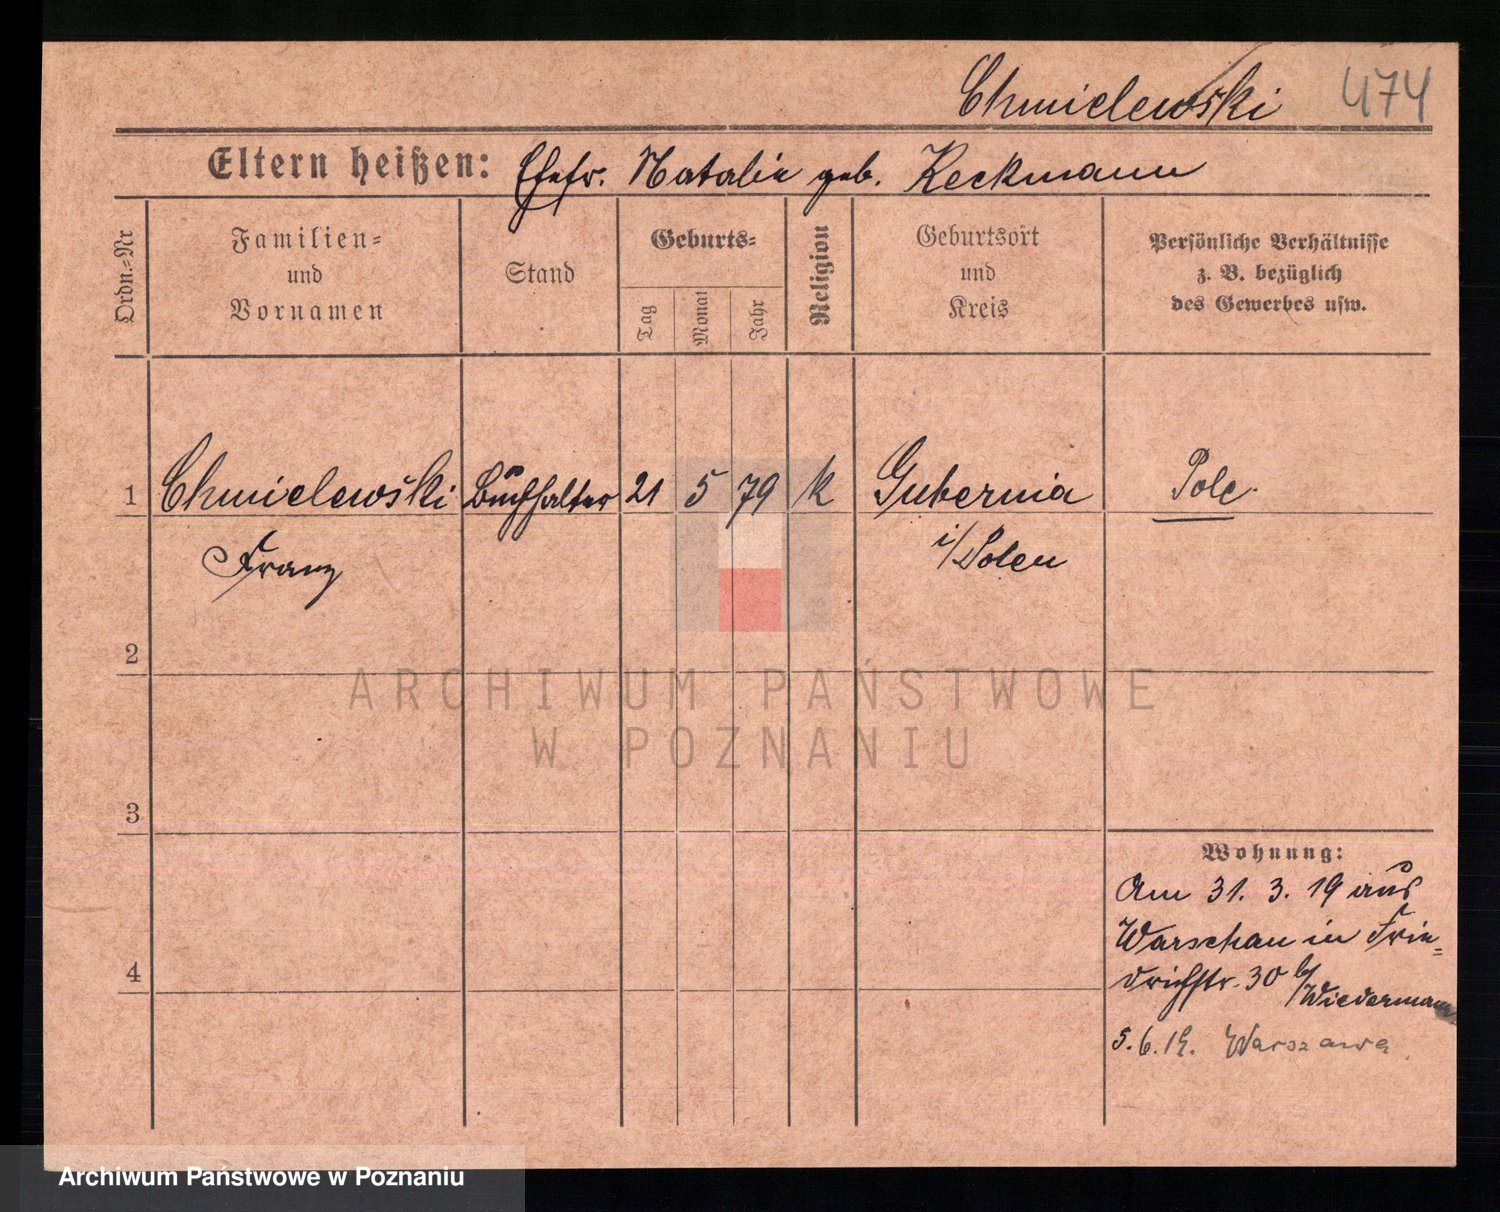 Chmielewski 474
Eltern heißen: Ehefr. Natalie geb. Keckmann
Ordn.-Nr
Familien-
und
Vornamen
Stand
Geburts-
Tag
Monat
Jahr
Religion
Geburtsort
und
Kreis
Persönliche Verhältnisse
z. B. bezüglich
des Gewerbes usw.
1 Chmielewski Buchhalter 21 5 79 k Gubernia Pole.
Franz i/Polen
2
ARCHIWUM PAŃSTWOWE
W POZNANIU
3
Wohnung:
Am 31. 3. 19 aus
Warschau in Frie-
4
drichstr. 30 b/
Wiedermann
5.6.19. Warszawa
Archiwum Państwowe w Poznaniu